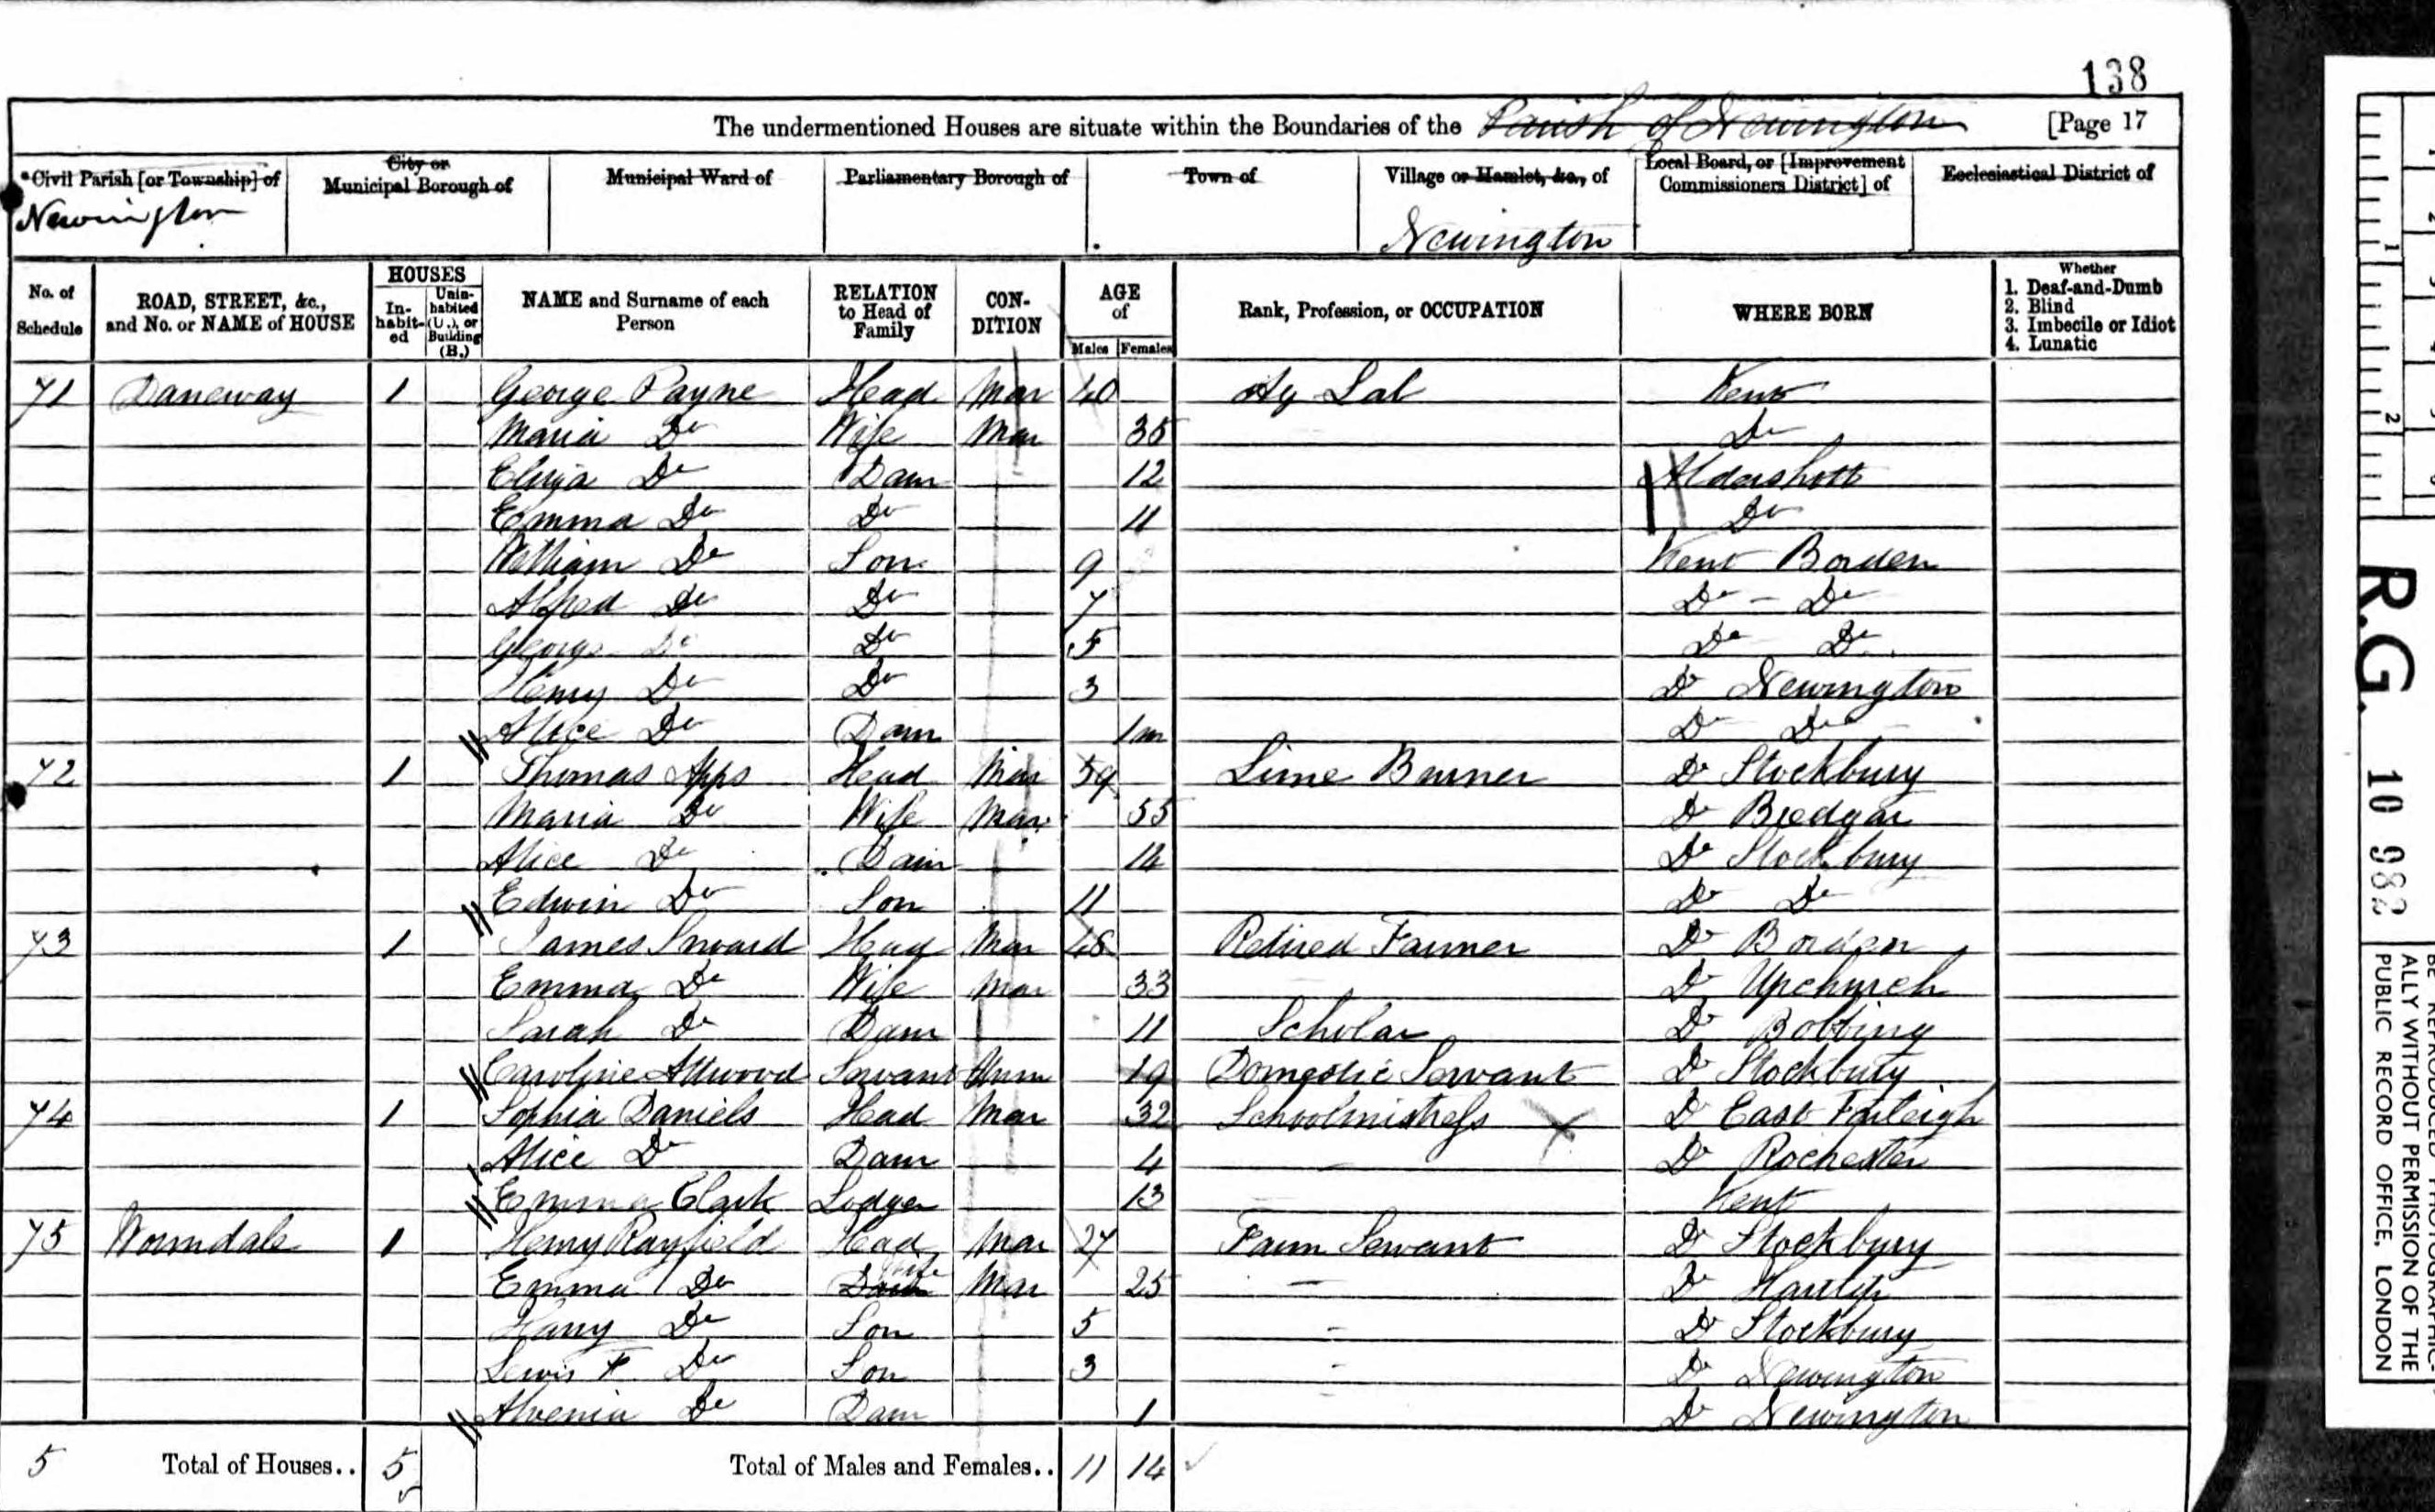 138
The undermentioned Houses are situate within the Boundaries of the Parish of Newington [Page 17
*Civil Parish [or Township] of City or Municipal Borough of Municipal Ward of Parliamentary Borough of Town of Village or Hamlet, &c., of Local Board, or [Improvement Commissioners District] of Ecclesiastical District of
Newington Newington
No. of Schedule ROAD, STREET, &c., and No. or NAME of HOUSE HOUSES Inhabited Uninhabited (U.), or Building (B.) NAME and Surname of each Person RELATION to Head of Family CONDITION AGE of Males Females Rank, Profession, or OCCUPATION WHERE BORN Whether 1. Deaf-and-Dumb 2. Blind 3. Imbecile or Idiot 4. Lunatic
71 Daneway 1 George Payne Head Mar 40 Ag Lab Kent
Maria Do Wife Mar 35 Do
Eliza Do Daur 12 Aldershott
Emma Do Do 11 Do
William Do Son 9 Kent Borden
Alfred Do Do 7 Do - Do
George Do Do 5 Do Do
Henry Do Do 3 Do Newington
Alice Do Daur 1m Do Do
72 1 Thomas Apps Head Mar 59 Lime Burner Do Stockbury
Maria Do Wife Mar 55 Do Bredgar
Alice Do Daur 14 Do Stockbury
Edwin Do Son 11 Do Do
73 1 James Head Mar 48 Retired Farmer Do Borden
Emma Do Wife Mar 33 Do Upchurch
Sarah Do Daur 11 Scholar Do Bobbing
Caroline Attwood Servant Unm 19 Domestic Servant Do Stockbury
74 1 Sophia Daniels Head Mar 32 Schoolmistress Do East Farleigh
Alice Do Daur 4 - Do Rochester
Emma Clark Lodger 13 Kent
75 Wormdale 1 Henry Rayfield Head Mar 27 Farm Servant Do Stockbury
Emma Do Daur Wife Mar 25 - Do Hartlip
Harry Do Son 5 - Do Stockbury
Lewis F Do Son 3 - Do Newington
Alvenia Do Daur 1 Do Newington
5 Total of Houses.. 5 Total of Males and Females.. 11 14
R.G. 10 982
ALLY WITHOUT PERMISSION OF THE
PUBLIC RECORD OFFICE, LONDON